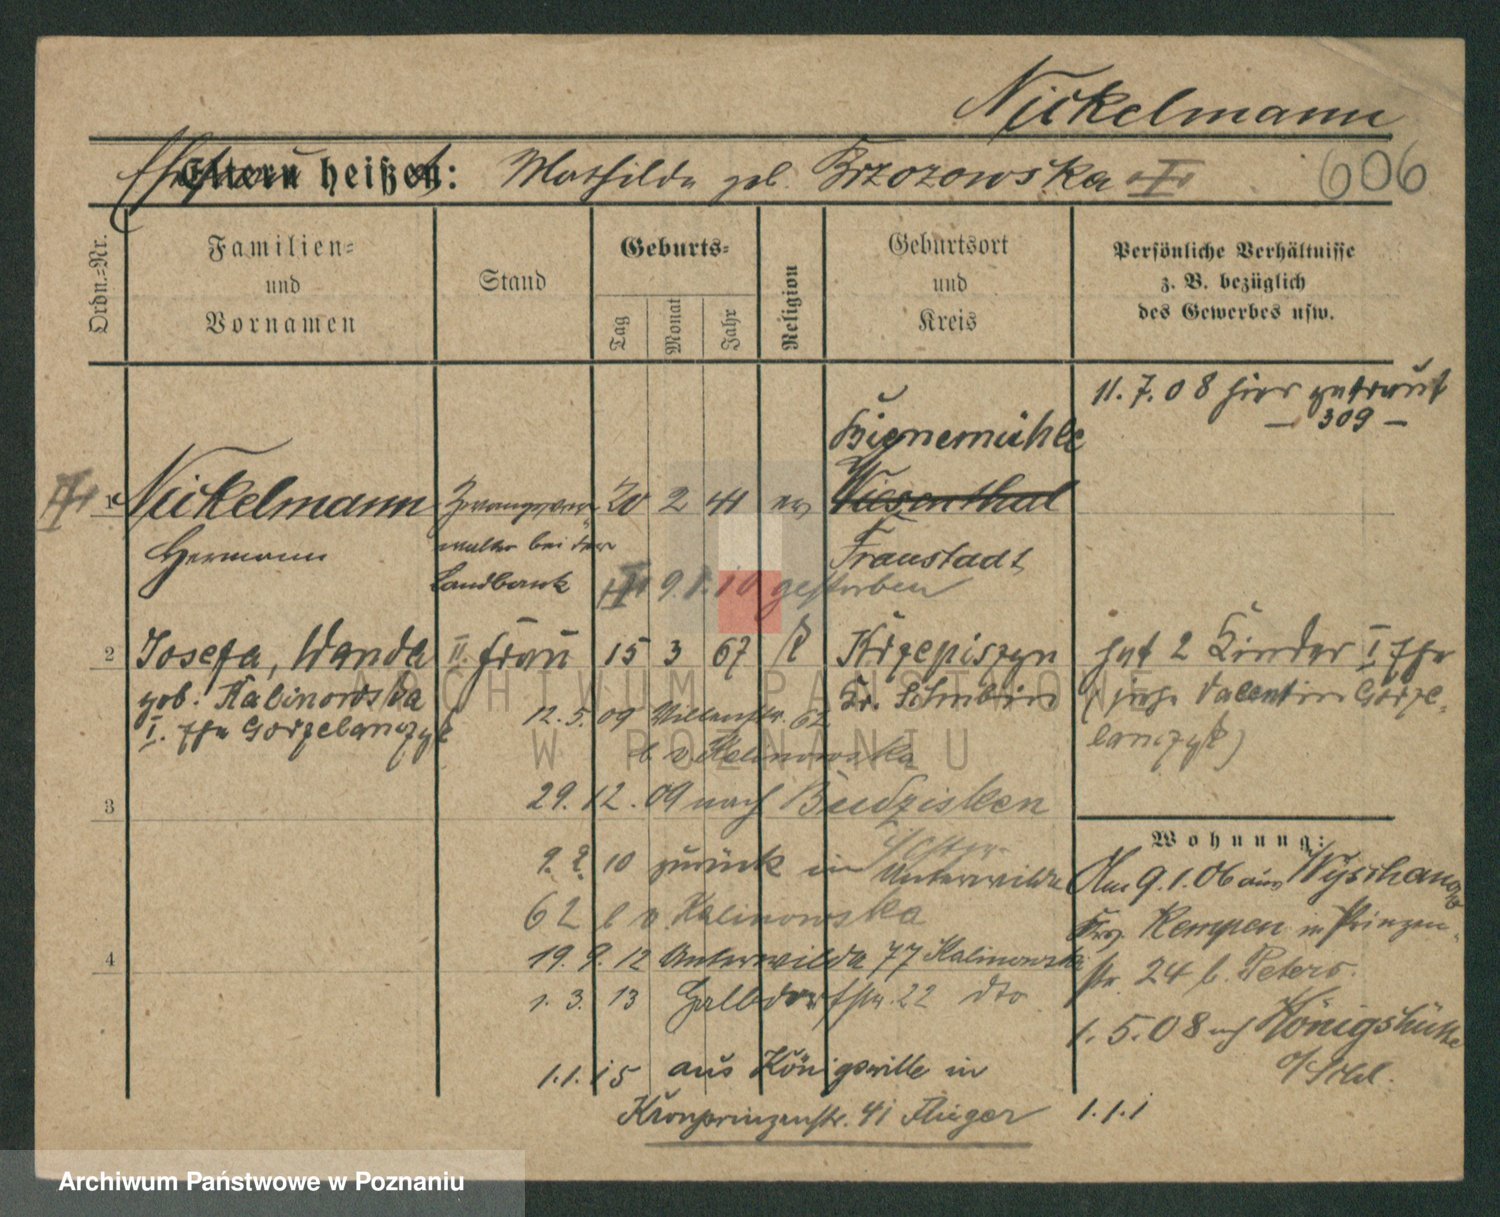 Nickelmann
Eltern heißen: Mathilde geb. Brzozowska
606
Ordn.-Nr.
Familien-
und
Vornamen
Stand
Geburts-
Tag
Monat
Jahr
Religion
Geburtsort
und
Kreis
Persönliche Verhältnisse
z. B. bezüglich
des Gewerbes usw.
11. 7. 08 hier getraut
– 309 –
Bienemühle
1 Nickelmann Zwangsver- 20 2 44 ev Wiesenthal
Hermann walter bei der Fraustadt
Landbank 9. 1. 10 gestorben
2 Josefa, Wanda II. Frau 15 3 67 k Krzepiszyn hat 2 Kinder I Ehe
geb. Kalinowska Kr. Schubin Valentin Gorze-
I. Ehe Gorzelanczyk 12. 5. 09 62 lanczyk)
b v Kalinowska
3 29. 12. 09 nach Budzisken
Wohnung:
9. 2. 10 zurück in Unterwilda
Am 9. 1. 06 aus Wyschanow
62 b v. Kalinowska
Krs. Kempen in Prinzen-
4 19. 9. 12 Unterwilda 77 Kalinowska
str. 24 b. Peters.
1. 3. 13 Halbdorfstr. 22 dto
1. 5. 08 nach Königshütte
o/Schl.
1. 1. 15 aus Königsville in
Kronprinzenstr. 41 Flieger 1. 1. 1
ARCHIWUM PAŃSTWOWE
W POZNANIU
Archiwum Państwowe w Poznaniu